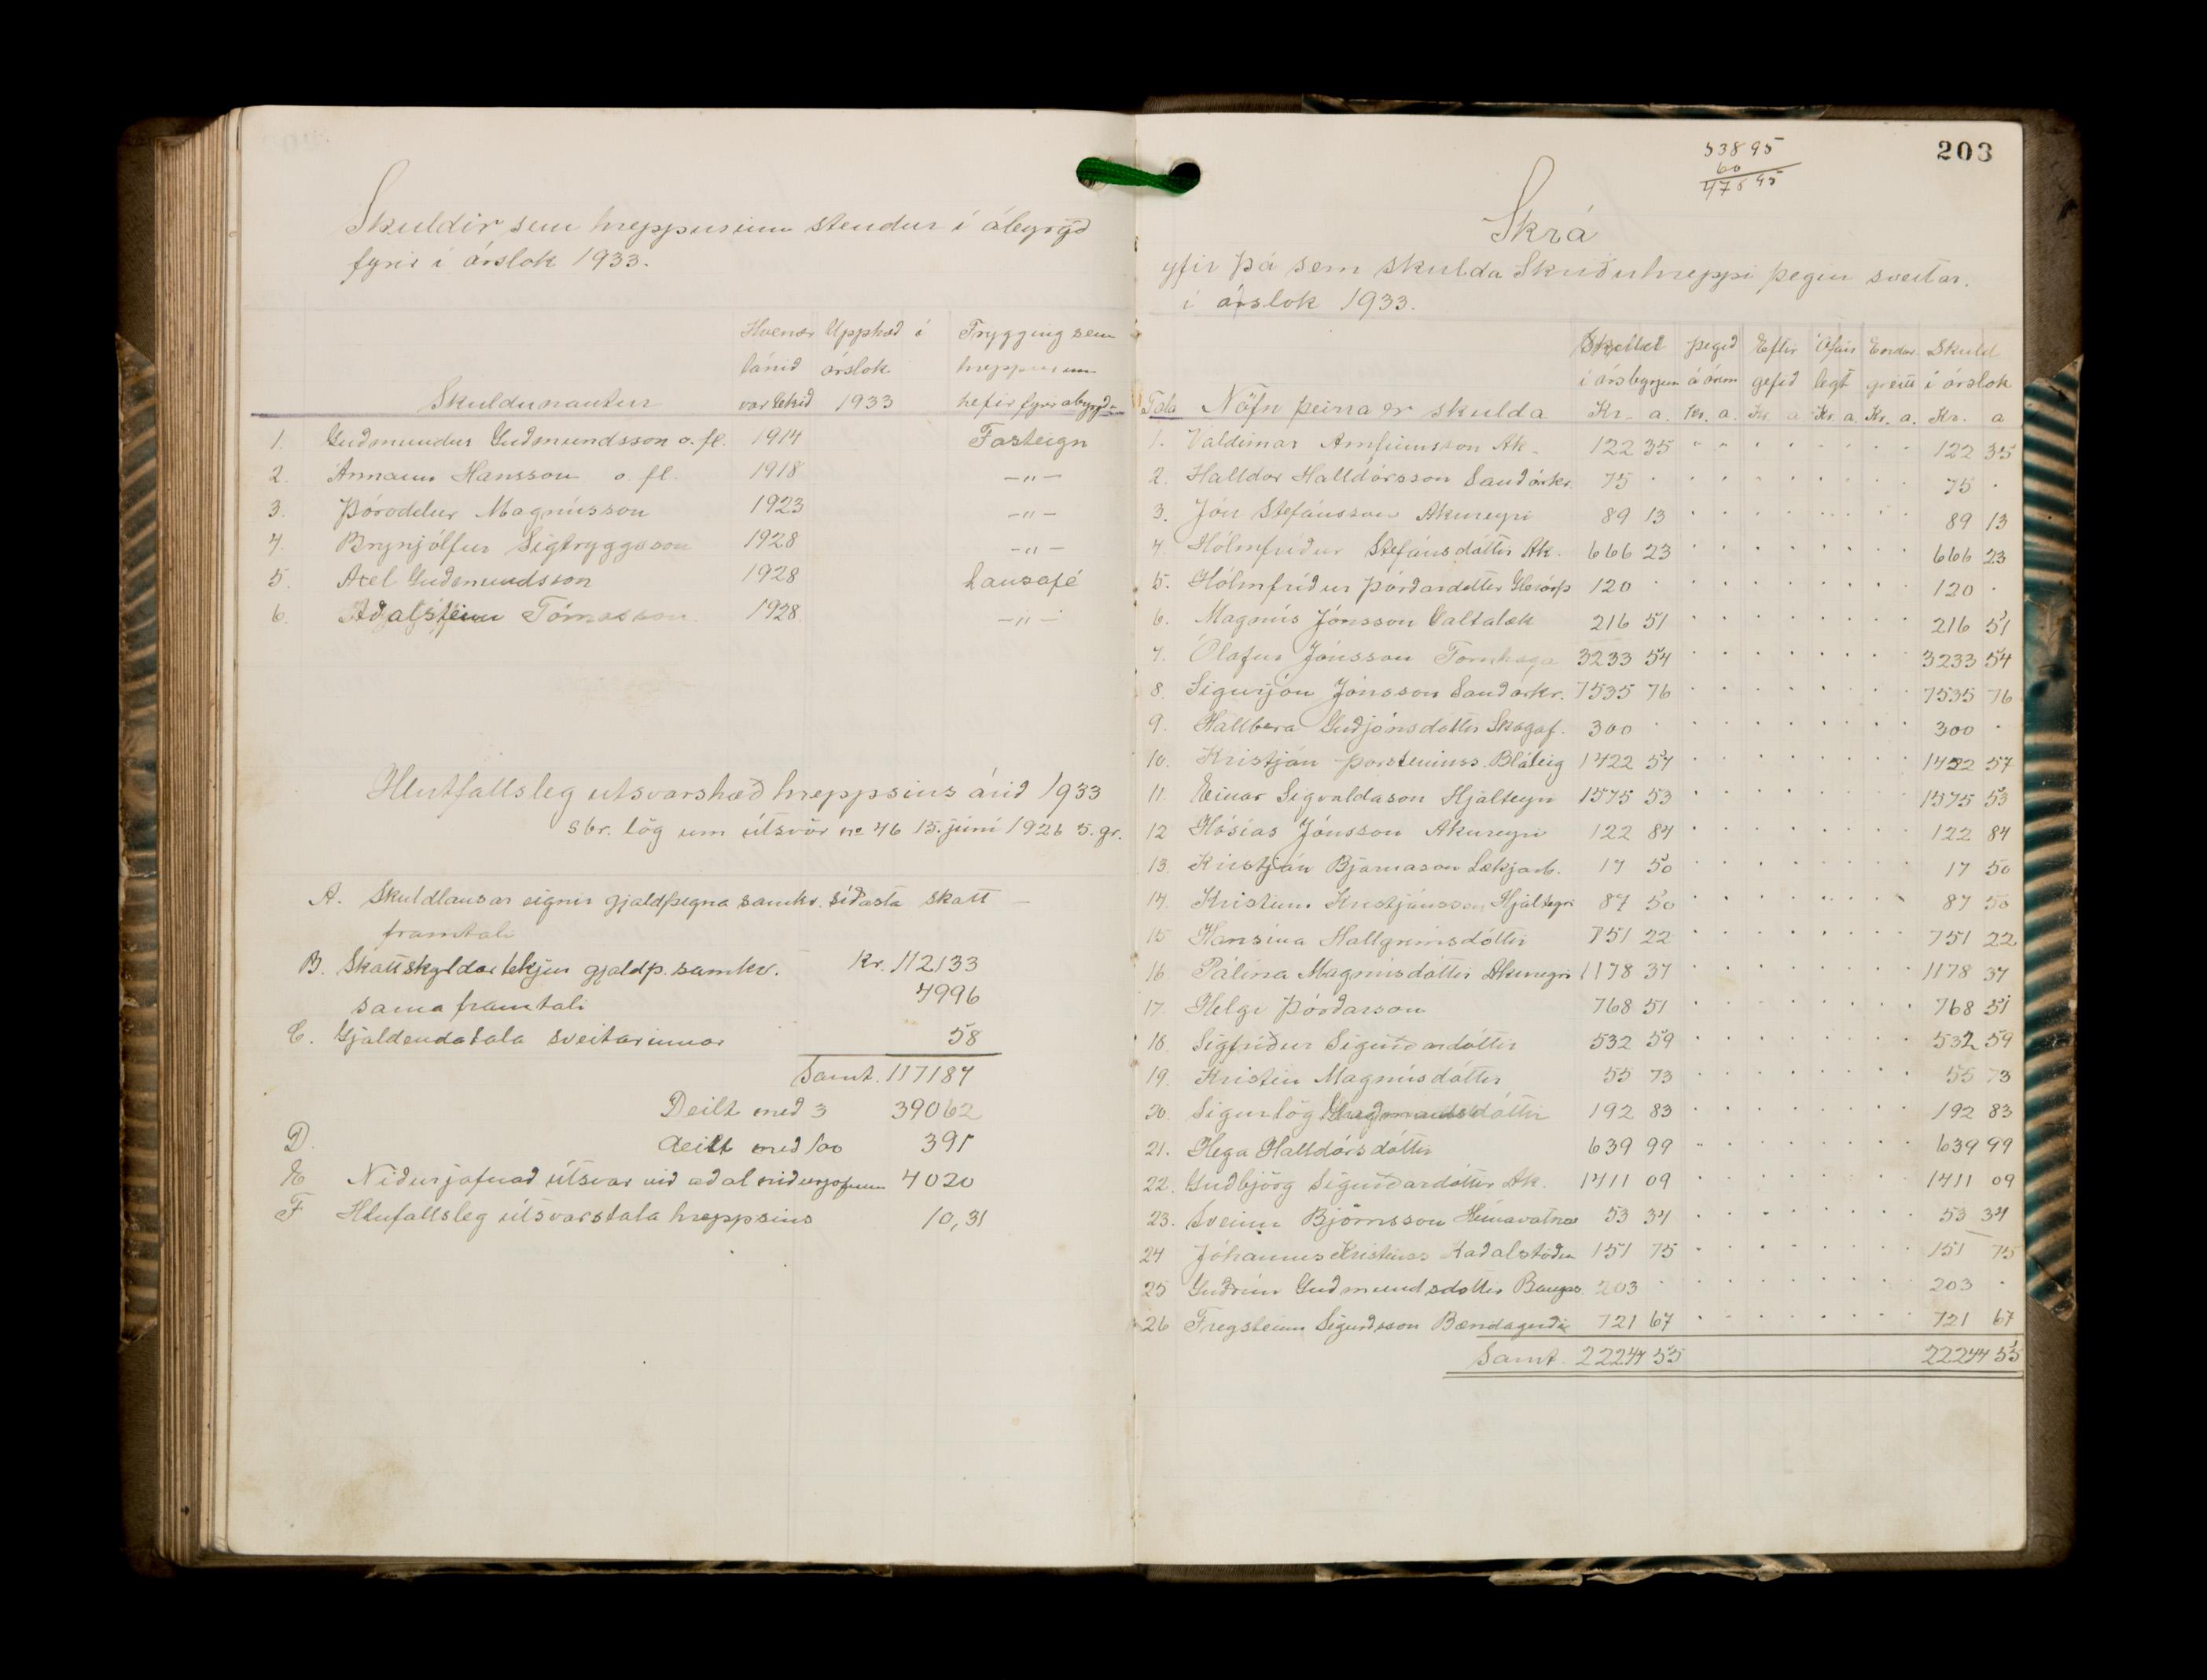 Skuldir, sem hreppurinn stendur í ábyrgð
fyrir í árslok 1933.
Hvenær Upphæð í Trygging sem
lánið árslok hreppurinn
Skuldunautur var tekið 1933 hefir fyrir ábyrgð
1. Guðmundur Guðmundsson o. fl. 1914 Fasteign
2. Ármann Hansson o. fl. 1918 —"—
3. Þóroddur Magnússon 1923 —"—
4. Brynjólfur Sigtryggsson 1928 —"—
5. Axel Guðmundsson 1928 Lausafé
6. Aðalsteinn Tómasson 1928 —"—
Hlutfallsleg útsvarshæð hreppsins árið 1933
sbr. lög um útsvör no 46 15. júní 1926 5. gr.
A. Skuldlausar eignir gjaldþegna samkv. síðasta skatt
framtali Kr. 112133
B. Skattskyldar tekjur gjaldþ. samkv.
sama framtali 4996
C. Gjaldendatala sveitarinnar 58
Samt. 117187
Deilt með 3 39062
D. deilt með 100 391
E Niðurjafnað útsvar við aðal niðurjöfnun 4020
F Hlufallsleg útsvarstala hreppsins 10,31
203
538 95
60
478 95
Skrá
yfir þá sem skulda Skriðuhreppi þegin sveitar.
í árslok 1933.
Skuld þegið Eftir Áfáir Endur Skuld
í ársbyrjun á árinu gefið legt greitt í árslok
Tala Nöfn þeirra er skulda Kr. a. Kr. a. Kr. a Kr. a. Kr. a. Kr. a
1. Valdimar Arnfinnsson Ak. 122 35 122 35
2. Halldór Halldórsson Sauðárkr. 75 75
3. Jón Stefánsson Akureyri 89 13 89 13
4. Hólmfríður Stefánsdóttir Ak. 666 23 666 23
5. Hólmfríður Þórðardóttir Glerárþ 120 120
6. Magnús Jónsson Galtalæk 216 51 216 51
7. Ólafur Jónsson Tornhaga 3233 54 3233 54
8. Sigurjón Jónsson Sauðárkr. 7535 76 7535 76
9. Hallbera Guðjónsdóttir Skagaf. 300 300
10. Kristján Þorsteinss. Bláteig 1422 57 1422 57
11. Einar Sigvaldason Hjalteyri 1575 53 1575 53
12 Hósías Jónsson Akureyri 122 84 122 84
13. Kristján Bjarnason Lækjarb. 17 50 17 50
14. Kristinn Kristjánsson Hjalteyri 87 50 87 50
15 Hansína Hallgrímsdóttir 751 22 751 22
16 Pálína Magnúsdóttir Akureyri 1178 37 1178 37
17. Helgi Þórðarson 768 51 768 51
18. Sigfríður Sigurðardóttir 532 59 532 59
19. Kristín Magnúsdóttir 55 73 55 73
20. Sigurlög Guðmundsdóttir 192 83 192 83
21. Helga Halldórsdóttir 639 99 639 99
22. Guðbjörg Sigurðardóttir Ak. 1411 09 1411 09
23. Sveinn Björnsson Húnavatns 53 34 53 34
24 Jóhannes Kristinss Kaðalstöðum 151 75 151 75
25 Guðrún Guðmundsdóttir 203 203
26 Freysteinn Sigurðsson Bændagerði 721 67 721 67
Samt. 22244 55 22244 55